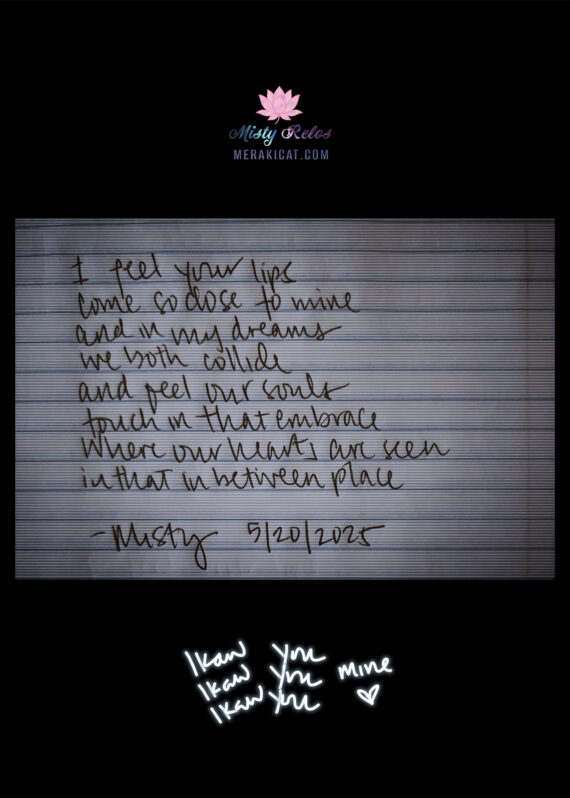 Misty Relos
MERAKICAT.COM
I feel your lips
come so close to mine
and in my dreams
we both collide
and feel our souls
touch in that embrace
where our hearts are seen
in that in between place
-Misty 5/20/2025
Ikaw you
Ikaw you mine
Ikaw you